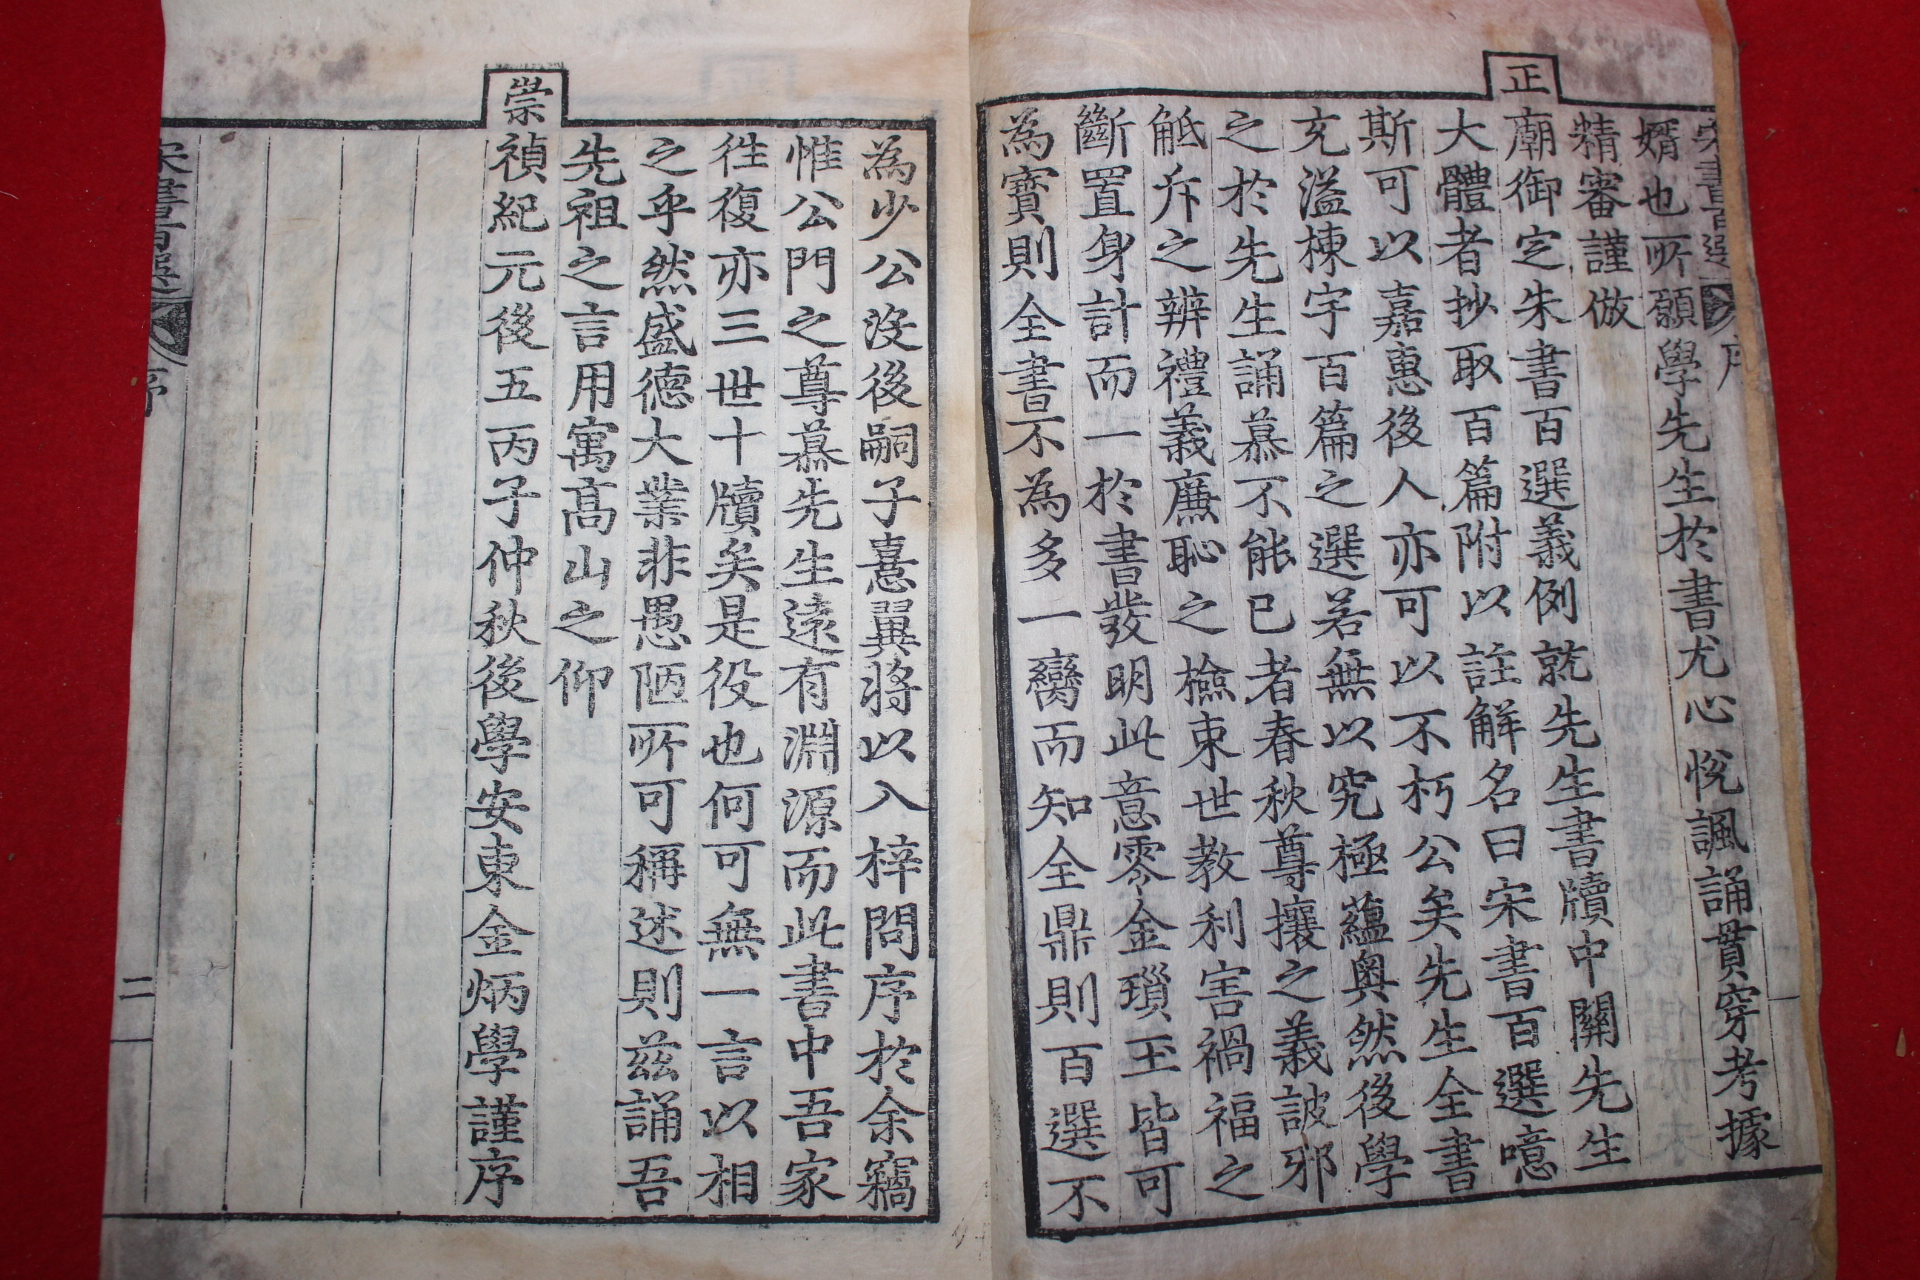 宋書百選 序
婿也所願學先生於書尤心悅諷誦貫穿考據
精審謹倣
正
廟御定朱書百選義例就先生書牘中關先生
大體者抄取百篇附以註解名曰宋書百選噫
斯可以嘉惠後人亦可以不朽公矣先生全書
充溢棟宇百篇之選若無以究極蘊奧然後學
之於先生誦慕不能已者春秋尊攘之義詖邪
觝斥之辨禮義廉恥之檢束世教利害禍福之
斷置身計而一於書發明此意零金瑣玉皆可
為寶則全書不為多一臠而知全鼎則百選不
為少公沒後嗣子憙翼將以入梓問序於余竊
惟公門之尊慕先生遠有淵源而此書中吾家
徃復亦三世十牘矣是役也何可無一言以相
之乎然盛德大業非愚陋所可稱述則茲誦吾
先祖之言用寓高山之仰
崇
禎紀元後五丙子仲秋後學安東金炳學謹序
宋書百選 序 二